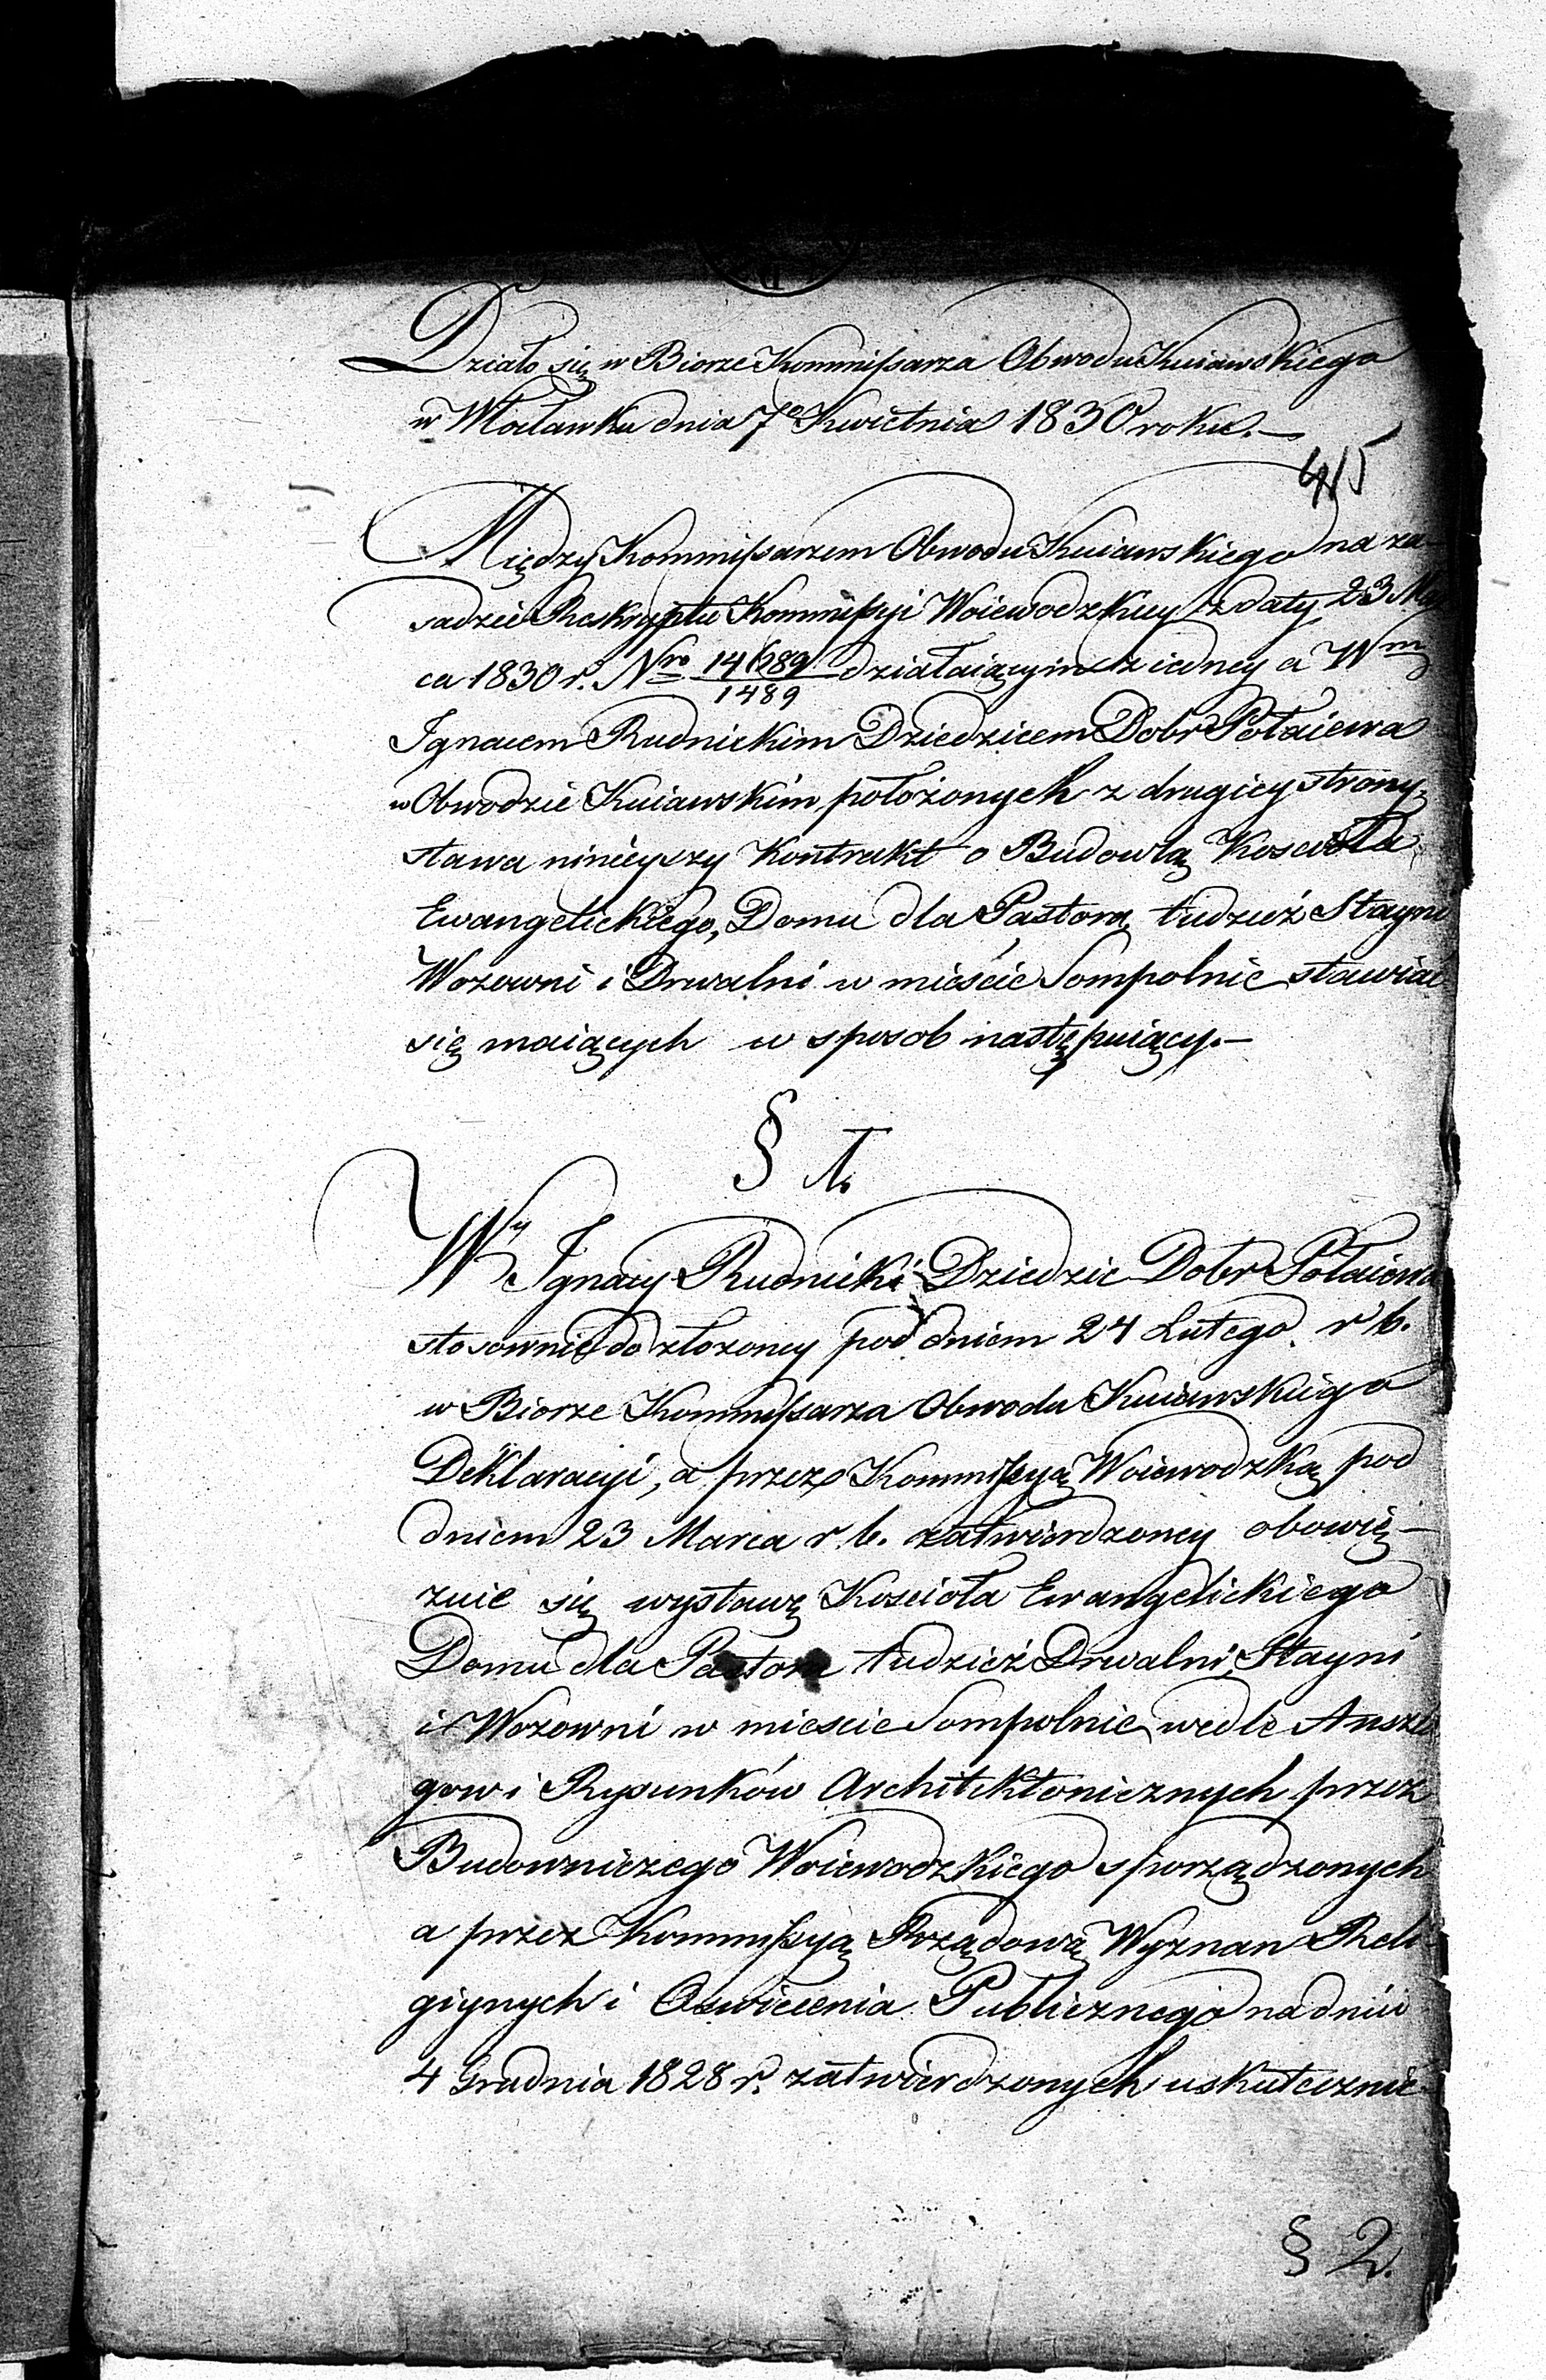 Działo się w Biorze Kommissarza Obwodu Kuiawskiego
w Włocławku dnia 7º Kwietnia 1830 roku.—
415
Między Kommissarzem Obwodu Kuiawskiego na za-
sadzie Reskryptu Kommissyi Woiewodzkiey z daty 23 M
ca 1830 r. Nro 14689/1489 działaiącym z iedney a Wm
Ignacem Rudnickim Dziedzicem Dobr Połaiewa
w Obwodzie Kuiawskim położonych z drugiey strony,
stawa ninieyszy Kontrakt o Budowlą Koscioła
Ewangelickiego, Domu dla Pastora, tudzież Stayni
Wozowni i Drwalni w mieście Sompolnie stawiać
się maiących w sposob następuiący.—
§ 1.
Wy Ignacy Rudnicki Dziedzic Dobr Połaiewa
stosownie do złozoney pod dniem 24 Lutego r b.
w Biorze Kommissarza Obwodu Kuiawskiego
Deklaracyi, a przez Kommissyą Woiewodzką pod
dniem 23 Marca r. b. zatwierdzoney obowię-
zuie się wystawę Kościoła Ewangelickiego
Domu dla Pastora tudzież Drwalni, Stayni
i Wozowni w miescie Sompolnie wedle Anszla
gow i Rysunków Architektonicznych przez
Budowniczego Woiewodzkiego sporządzonych
a przez Kommissyą Rządową Wyznan Reli
giynych i Oswiecenia Publicznego na dniu
4 Grudnia 1828 r. zatwierdzonych uskutecznić
§ 2.